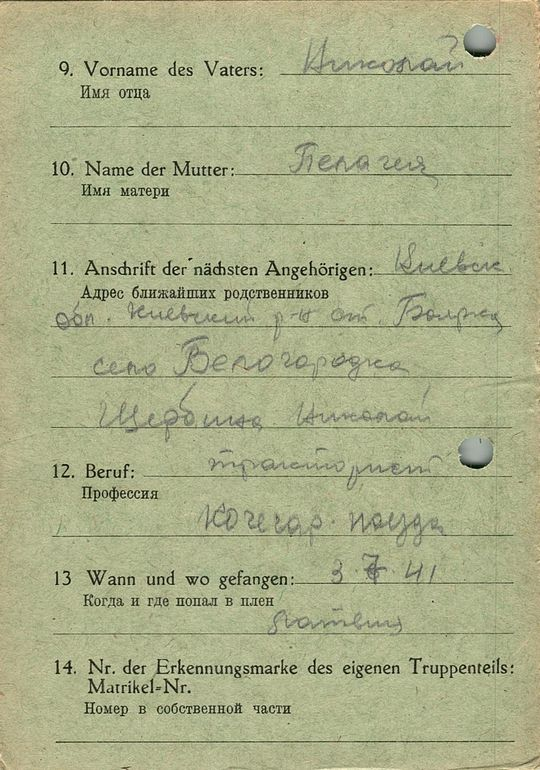 9. Vorname des Vaters: Николай
Имя отца
10. Name der Mutter: Пелагея
Имя матери
11. Anschrift der nächsten Angehörigen: Киевск
Адрес ближайших родственников
обл. Киевский р-н ст. Боярка
село Белогородка
Щербина Николай
12. Beruf: тракторист
Профессия
Кочегар поезда
13 Wann und wo gefangen: 3. 7. 41
Когда и где попал в плен
Латвия
14. Nr. der Erkennungsmarke des eigenen Truppenteils:
Matrikel-Nr.
Номер в собственной части